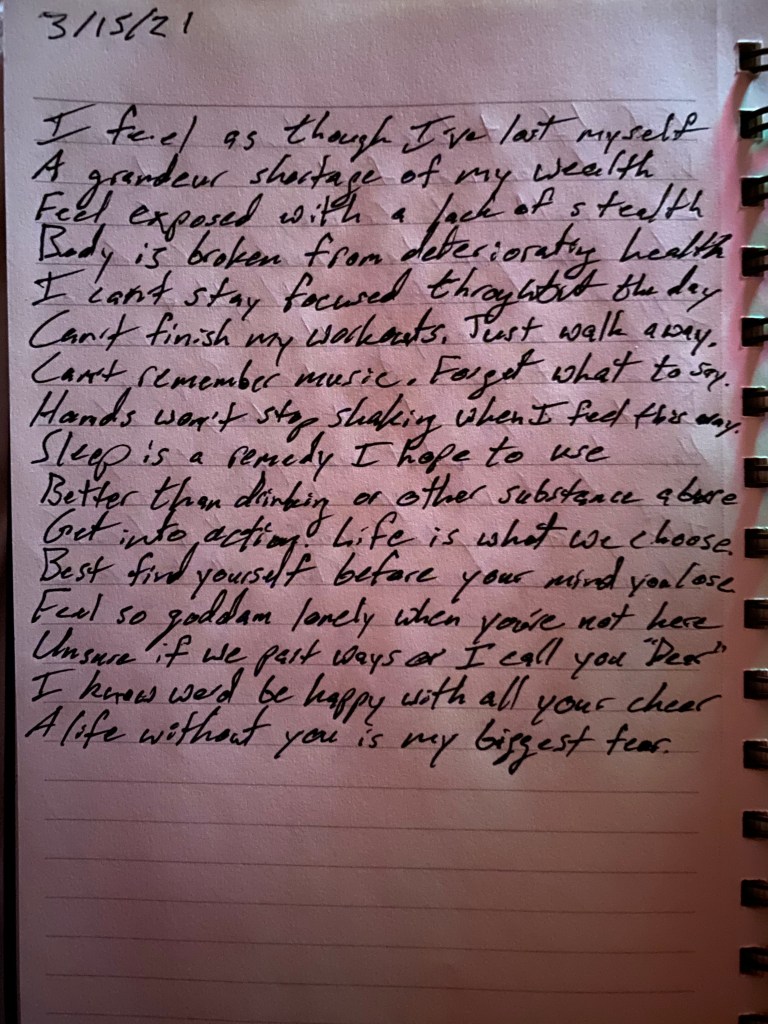 3/15/21
I feel as though I've lost myself
A grandeur shortage of my wealth
Feel exposed with a lack of stealth
Body is broken from deterioratig health
I can't stay focused throughout the day
Can't finish my workouts. Just walk away.
Can't remember music. Forget what to say.
Hands won't stop shaking when I feel this way.
Sleep is a remedy I hope to use
Better than drinking or other substance abuse
Get into action. Life is what we choose.
Best find yourself before your mind you lose
Feel so goddam lonely when you're not here
Unsure if we part ways or I call you "Dear"
I know we'd be happy with all your cheer
A life without you is my biggest fear.